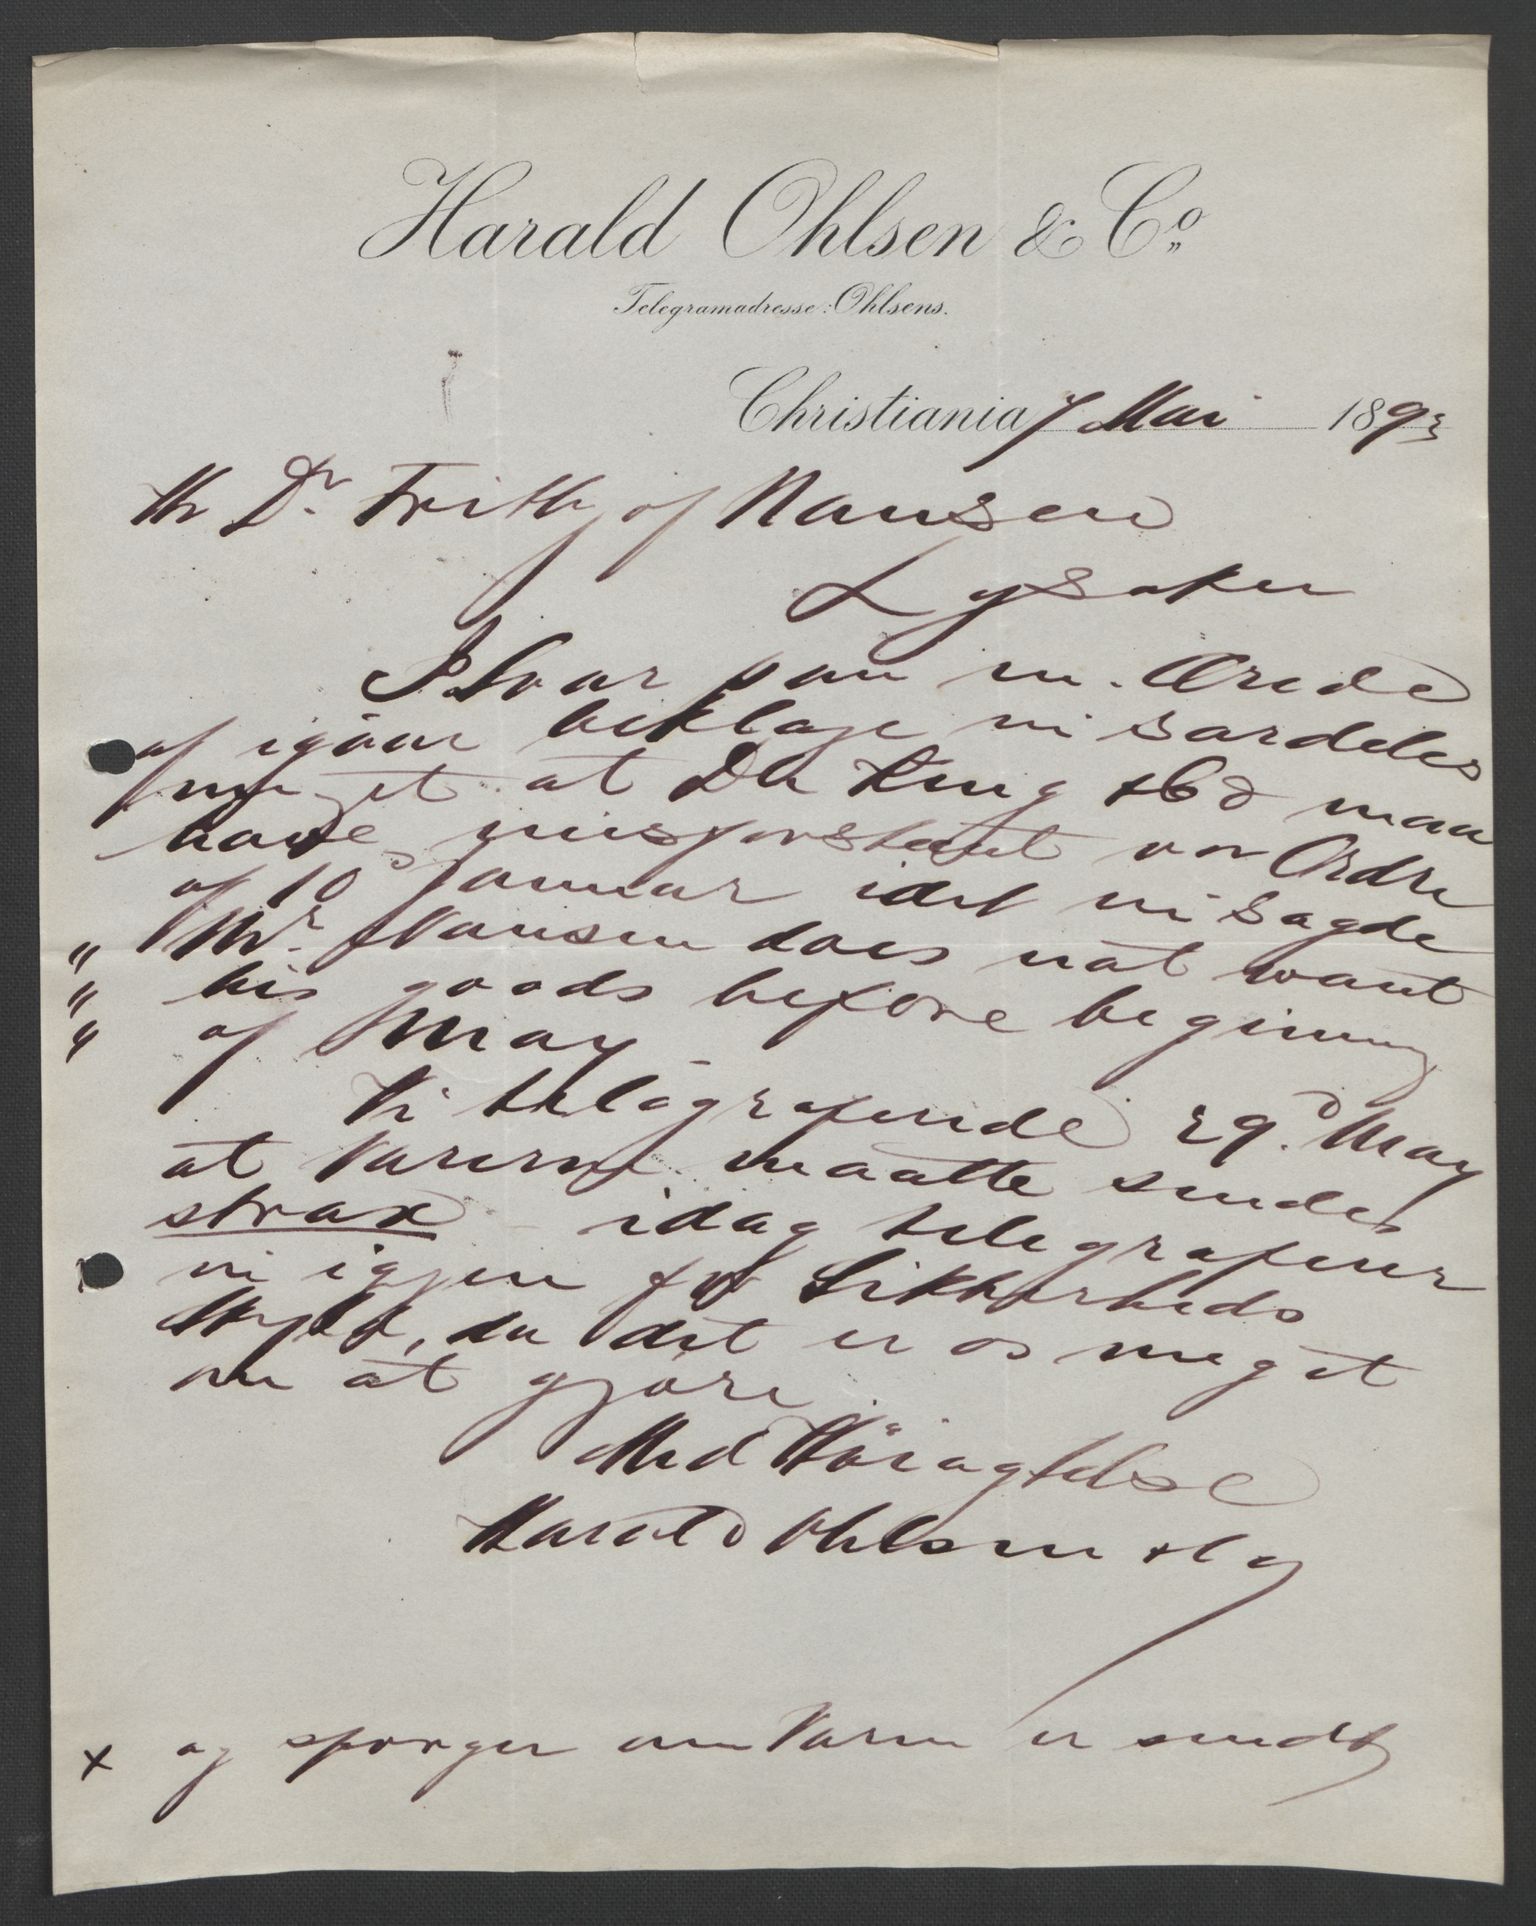 Harald Ohlsen & Co.
Telegramadresse: Ohlsens.
Christiania 7 Mai 1893
Hr Dr. Frithjof Nansen
Lysaker
I Svar paa m. Ærede
af igaar beklage vi særdeles
meget at De King & Co maa
have misforstaaet vor Ordre
af 10 Januar idet vi sagde
" Mr. Nansen does not want
" his goods before beginning
" of May
Vi telegraferede 29. May
at Varerne maatte sendes
strax idag telegraferer
vi igjen for Sikkerheds
Skyld, da det er os meget
om at gjøre
Med Høiagtelse
Harald Ohlsen & Co
x og spørger om Varen er sendt